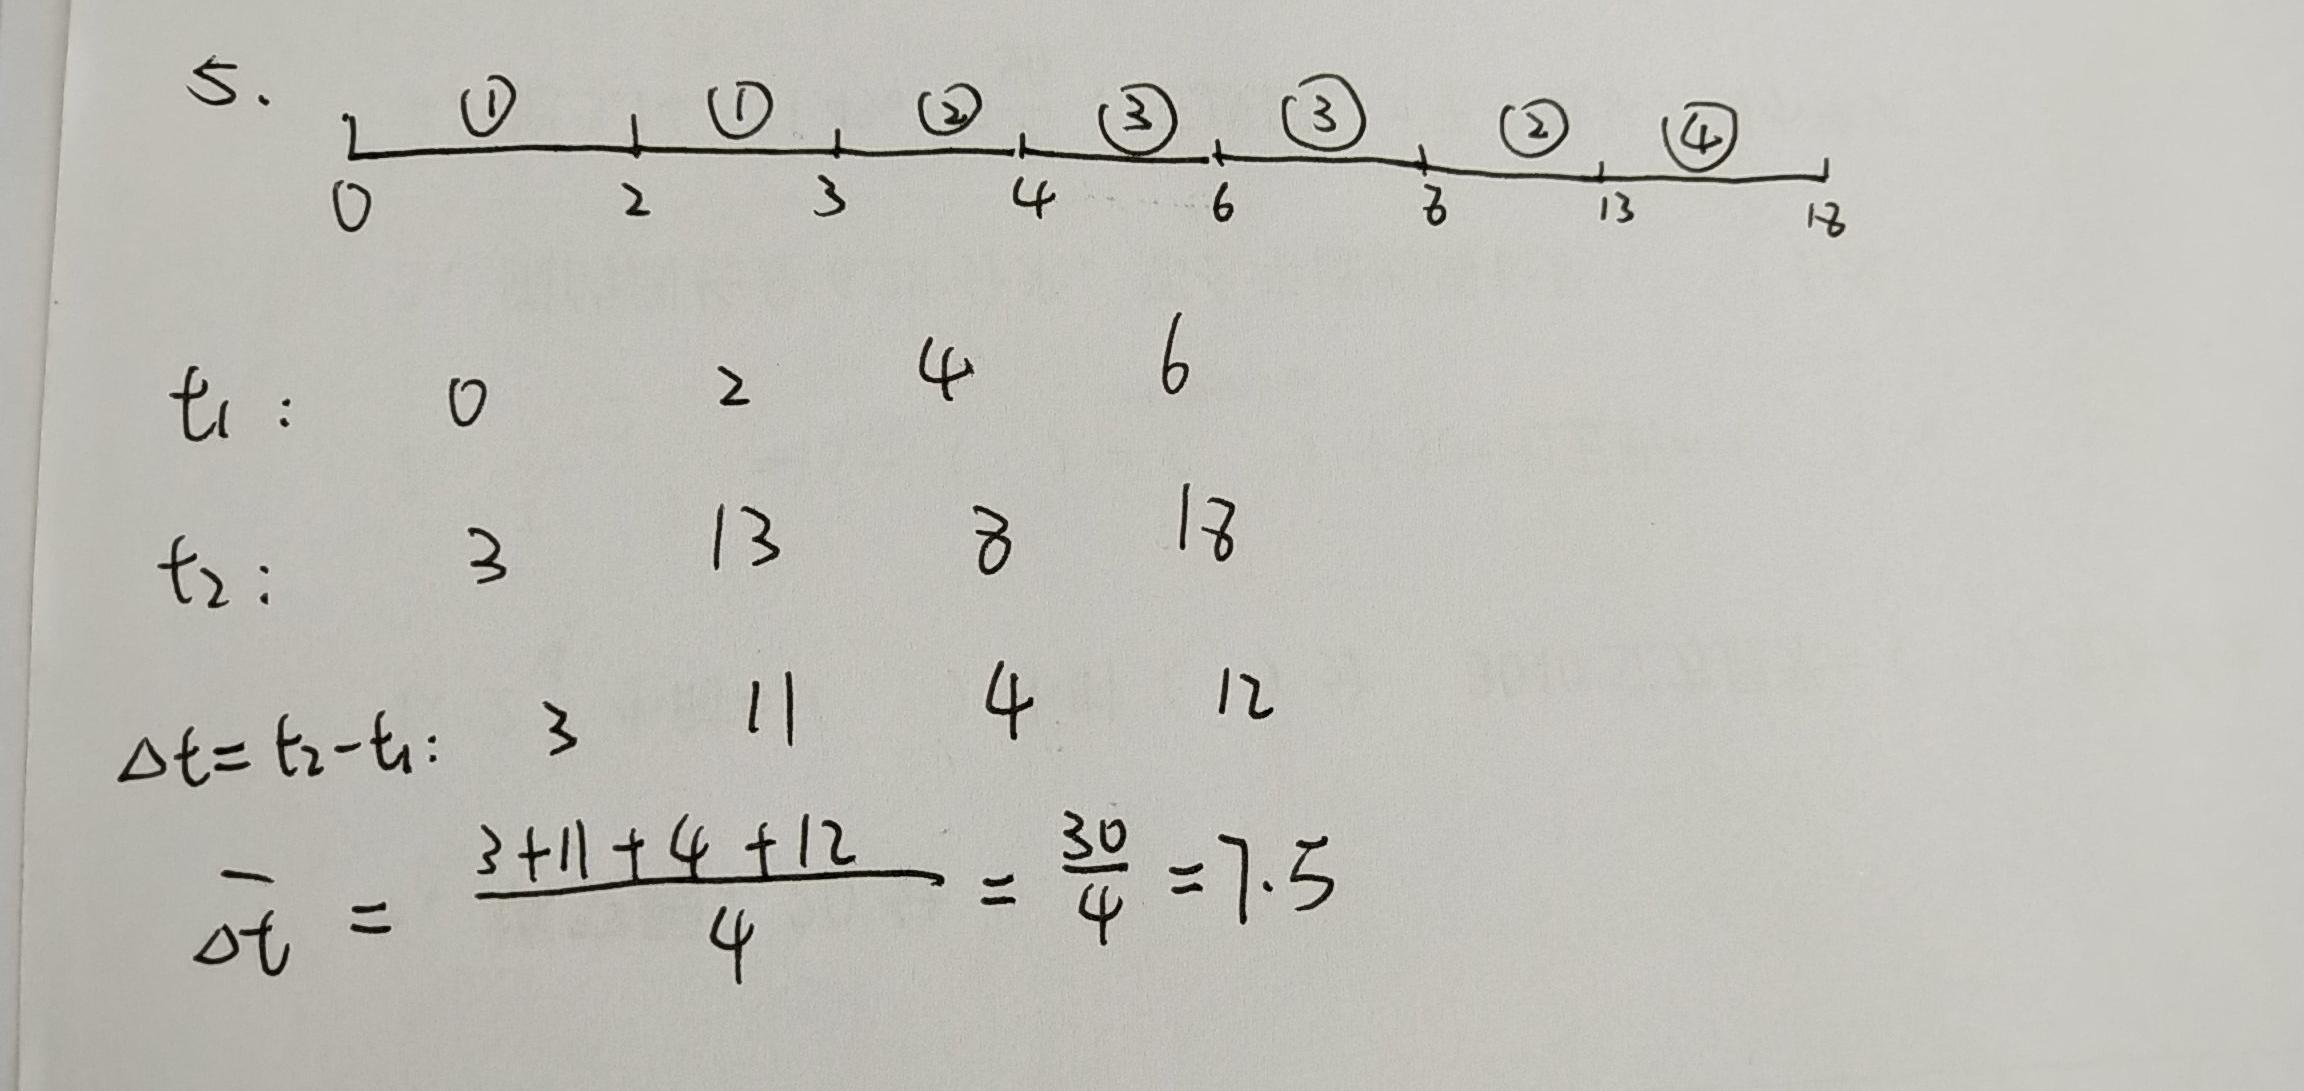 5. ① ① ② ③ ③ ② ④
0 2 3 4 6 8 13 18
t₁: 0 2 4 6
t₂: 3 13 8 18
Δt=t₂-t₁: 3 11 4 12
Δt̅ = (3+11+4+12)/4 = 30/4 = 7.5